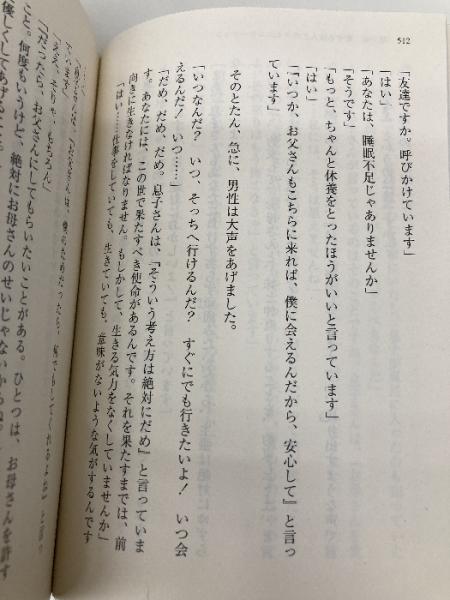 512
「友達ですか。呼びかけています」
「はい」
「あなたは、睡眠不足じゃありませんか」
「そうです」
「もっと、ちゃんと休養をとったほうがいいと言っています」
「はい」
「『いつか、お父さんもこちらに来れば、僕に会えるんだから、安心して』と言っ
ています」
そのとたん、急に、男性は大声をあげました。
「いつなんだ？　いつ、そっちへ行けるんだ？　すぐにでも行きたいよ！　いつ会
えるんだ！　いつ……」
「だめ、だめ、だめ。息子さんは、『そういう考え方は絶対にだめ』と言っていま
す。あなたには、この世で果たすべき使命があるんです。それを果たすまでは、前
向きに生きなければなりません。もしかして、生きる気力をなくしていませんか」
「はい……仕事をしていても、生きていても、意味がないような気がするんです
ています」
「ええ、そりゃ、もちろん」
「『だったら、お父さんにしてもらいたいことがある。ひとつは、お母さんを許す
こと。何度もいうけど、絶対にお母さんのせいじゃないからね。
優しくしてあげること。